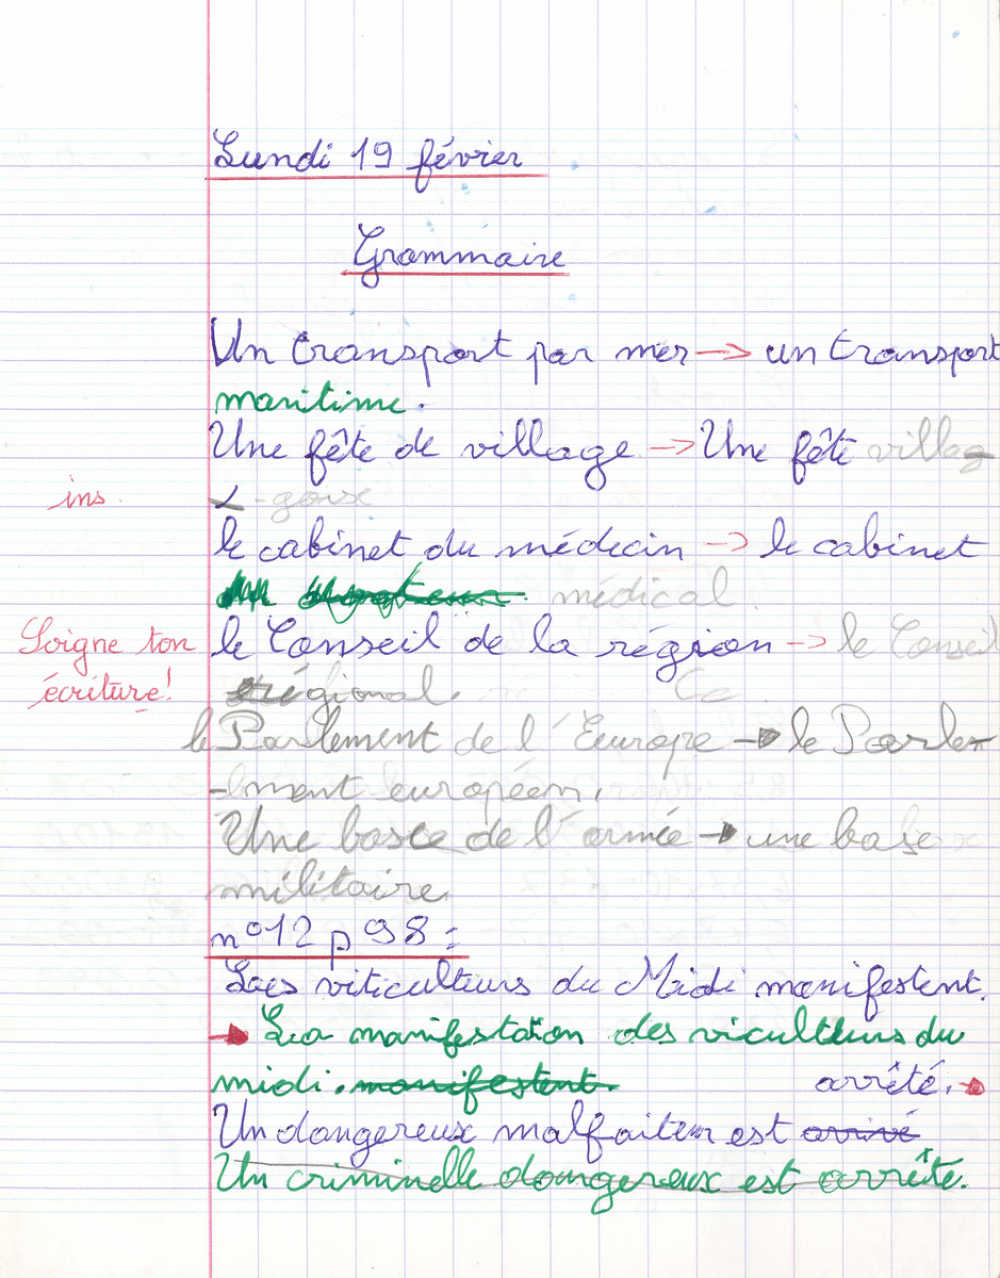 Lundi 19 février
Grammaire
Un transport par mer → un transport
maritime.
Une fête de village → Une fête villag-
ins.
-goise
le cabinet du médecin → le cabinet
médical.
Soigne ton
écriture!
le Conseil de la région → le Conseil
régional
le Parlement de l'Europe → le Parle-
-lment européen.
Une base de l'armée → une base
militaire
n°12 p 98 :
Les viticulteurs du Midi manifestent.
→ La manifestation des viculteurs du
midi. manifestent.
arrêté. →
Un dangereux malfaiteur est arrivé
Un criminelle doungereux est arrête.